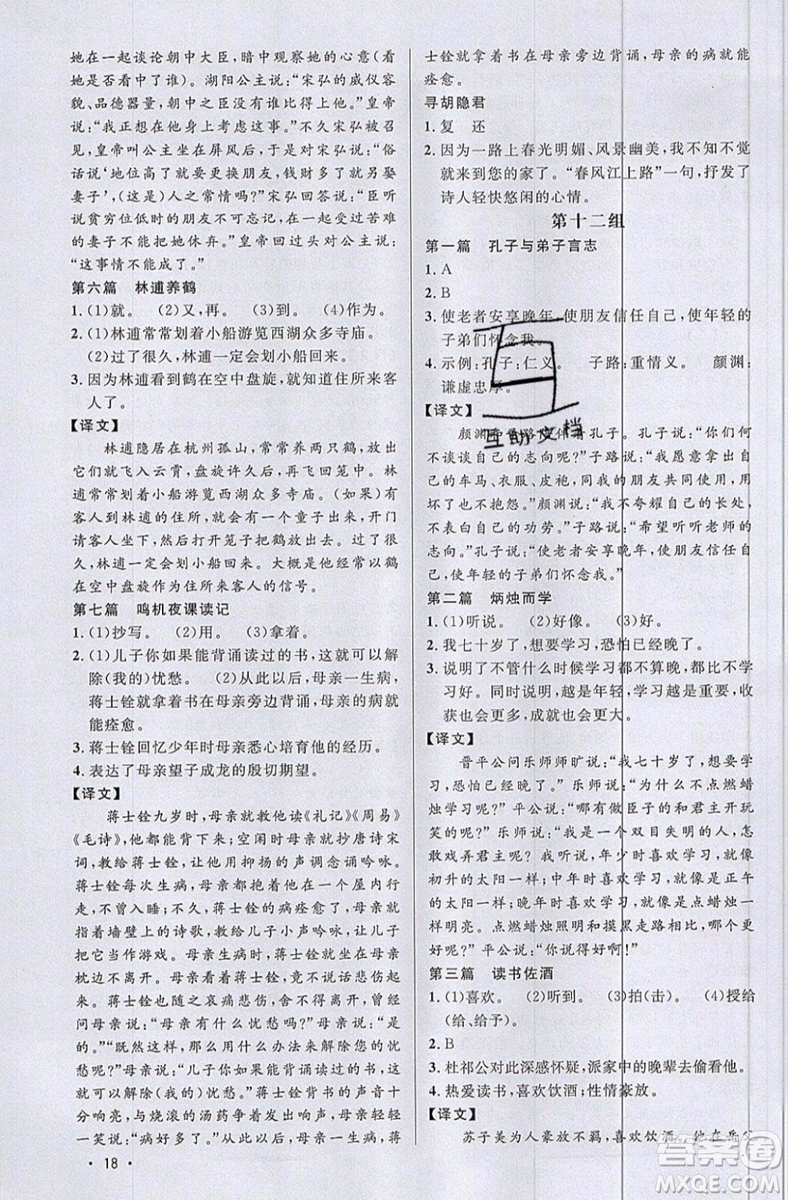 她在一起谈论朝中大臣，暗中观察她的心意（看
她是否看中了谁）。湖阳公主说：“宋弘的威仪容
貌、品德器量，朝中之臣没有谁比得上他。”皇帝
说：“我正想在他身上考虑这事。”不久宋弘被召
见，皇帝叫公主坐在屏风后，于是对宋弘说：“俗
话说‘地位高了就要更换朋友，钱财多了就另娶
妻子’，（这是）人之常情吗？”宋弘回答说：“臣听
说贫穷位低时的朋友不可忘记，一起承受苦难
的妻子不能把她休弃。”皇帝回过头对公主说：
“这事情不能成了。”
第六篇 林逋养鹤
1. (1)就。 (2)又，再。 (3)到。 (4)作为。
2. (1)林逋常常划着小船游览西湖众多寺庙。
(2)过了很久，林逋一定会划小船回来。
3. 因为林逋看到鹤在空中盘旋，就知道住所来客
人了。
【译文】
林逋隐居在杭州孤山，常常养两只鹤，放出
去它们就飞入云霄，盘旋许久后，再飞回笼中。林
逋常常划着小船游览西湖众多寺庙。（如果）有
客人到林逋的住所，就会有一个童子出来，开门
请客人坐下并接待，打开笼子把鹤放出来。过了
很久，林逋一定会划小船回来。大概是他曾经以鹤
在空中盘旋作为住所来客人的信号。
第七篇 鸣机夜课读记
1. (1)抄写。 (2)用。 (3)拿着。
2. (1)儿子你如果能背诵读过的书，就可以解
除(我的)忧愁。 (2)从此以后，母亲一生病，
蒋士铨就拿着书在母亲旁边背诵，母亲的病就
能痊愈。
3. 蒋士铨回忆少年时母亲悉心培育他的经历。
4. 表达了母亲望子成龙的殷切期望。
【译文】
蒋士铨九岁时，母亲就教他读《礼记》《周易》
《毛诗》，他都能背下来；空闲时母亲就抄唐诗宋
词，教给蒋士铨，让他用抑扬的声调念诵吟咏。
蒋士铨每次生病，母亲都会抱着他在室内走动，
不曾入睡；不久，蒋士铨的病痊愈了，母亲就
指着墙壁上的诗歌，教给儿子小声吟咏，让他
把这当作游戏。母亲生病时，蒋士铨就坐在母亲
枕头旁边不离开。母亲看着儿子，总是没有言语
而悲伤，蒋士铨随之哀痛悲伤，依恋着母亲。曾经
问母亲说：“母亲有什么忧愁吗？”母亲说：“是
的。”“既然这样那么用什么办法来解除母亲的
忧愁呢？”母亲说：“儿子你如果能背诵读过的书，
就可以解除（我的）忧愁。”蒋士铨背书的声音十
分响亮，与烧滚的汤药声争相沸腾。母亲轻轻
一笑说：“病好多了！”从此以后，母亲一生病，蒋
· 18 ·
士铨就拿着书在母亲旁边背诵，母亲的病就能
痊愈。
寻胡隐君
1. 复 还
2. 因为一路上春光明媚、风景幽美，我不知不觉
就到您的家了。“春风江上路”一句，抒发了
诗人轻快悠闲的心情。
第十二组
第一篇 孔子与弟子言志
1. A
2. B
3. 使老者安享晚年，使朋友信任自己，使年轻的
子弟们怀念我。
4. 示例：孔子：仁义。 子路：重情义。 颜渊：
谦虚忠厚。
【译文】
颜渊、子路陪伴着孔子。孔子说：“你们何
不谈谈自己的志向呢？”子路说：“我愿意拿出自
己的车马、衣服、皮袍，同朋友共同使用，用
坏了也不抱怨。”颜渊说：“我不夸耀自己的长处，
不表白自己的功劳。”子路说：“希望听听老师的
志向。”孔子说：“使老者安享晚年，使朋友信任自
己，使年轻的子弟们怀念我。”
第二篇 炳烛而学
1. (1)听说。 (2)好像。 (3)用。
2. 我七十岁了，想要学习，恐怕已经晚了。
3. 说明了不管什么时候学习都不算晚，最重要的是
学好学习。同时说明，越是年轻，学习越是重要，收
获也会更大，成就也会更大。
【译文】
晋平公问乐师师旷说：“我七十岁了，想要学习，
恐怕已经晚了。”乐师说：“为什么不点燃蜡烛
学习呢？”平公说：“哪有做臣子的和君主开玩
笑的呢？”乐师说：“我是一个双目失明的人，怎
敢戏弄君主呢？我听说，少年时喜欢学习，就像
初升的太阳一样；中年时喜欢学习，就像正午
的太阳一样；晚年时喜欢学习，就像点燃蜡烛
一样明亮。点燃蜡烛照明和摸黑走路相比，哪个更
好呢？”平公说：“你说得好啊！”
第三篇 读书佐酒
1. (1)喜欢。 (2)听到。 (3)拍(击)。 (4)授给
(给、给予)。
2. B
3. 杜祁公对此深感怀疑，派家中的晚辈去偷看他。
4. 热爱读书，喜欢饮酒；性情豪放。
【译文】
苏子美为人豪放不羁，喜欢饮酒，他在岳父
互助文档
答案圈
MXQE.COM